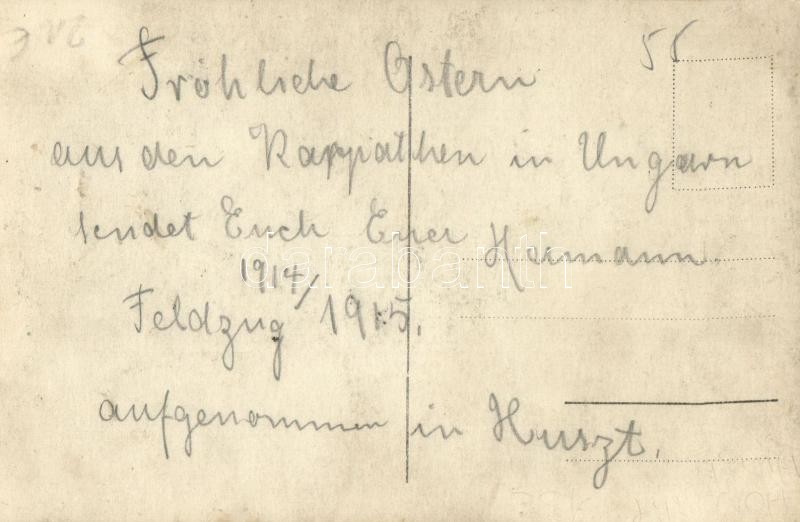 55
Fröhliche Ostern
aus den Karppathen in Ungarn
sendet Euch Euer Hermann.
1914/
Feldzug 1915.
aufgenommen in Huszt.
darabanth